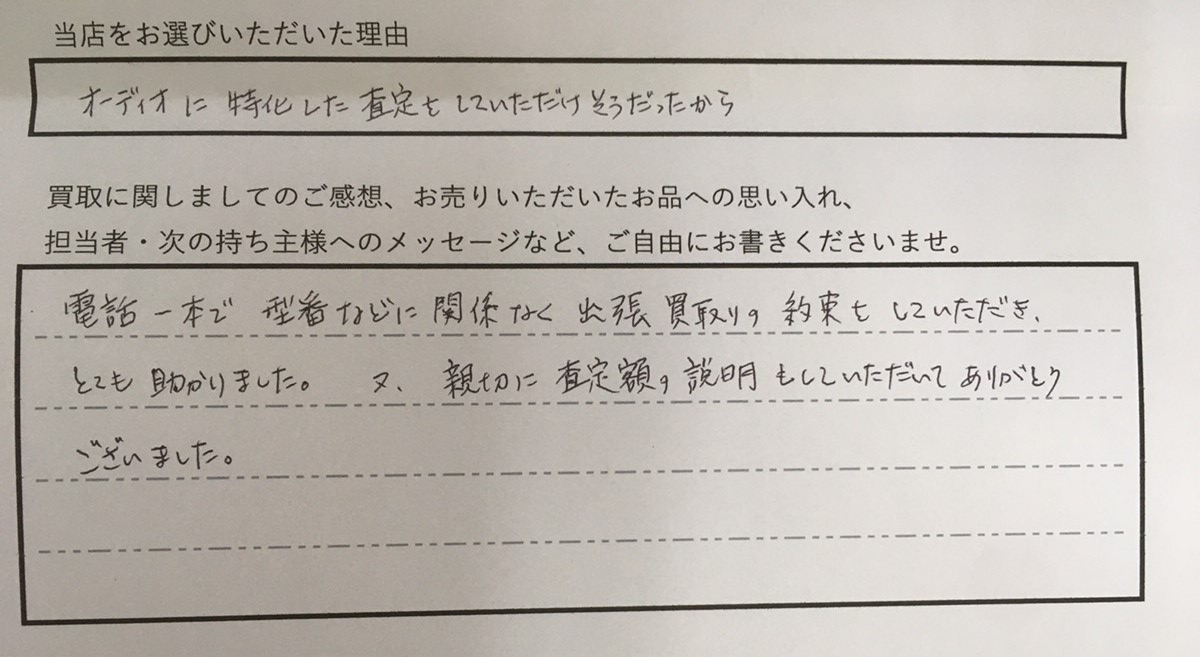 当店をお選びいただいた理由
オーディオに特化した査定をしていただけそうだったから
買取に関しましてのご感想、お売りいただいたお品への思い入れ、
担当者・次の持ち主様へのメッセージなど、ご自由にお書きくださいませ。
電話一本で型番などに関係なく出張買取りの約束をしていただき、
とても助かりました。又、親切に査定額の説明もしていただいてありがとう
ございました。